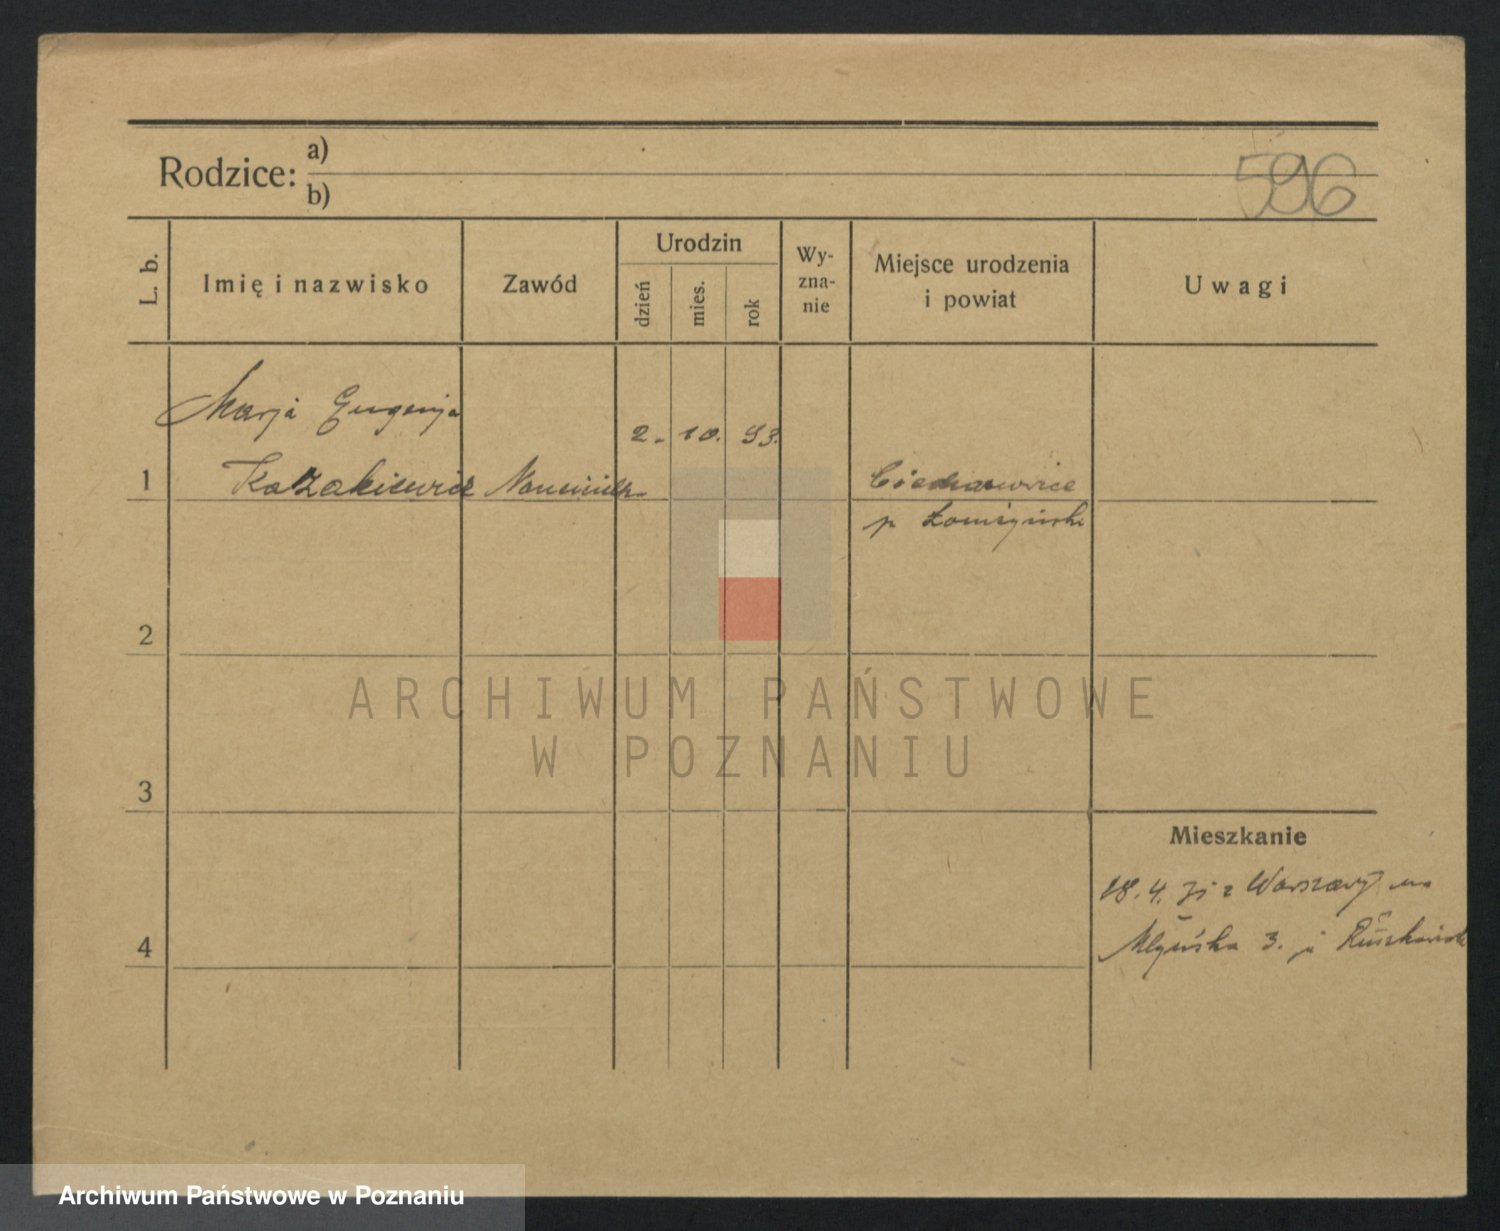 Rodzice: a)
b)
596
L. b.
Imię i nazwisko
Zawód
Urodzin
dzień
mies.
rok
Wy-
zna-
nie
Miejsce urodzenia
i powiat
Uwagi
1
Marja Eugenja
Kazakiewicz
2. 10. 93.
p Łomżyński
2
3
4
Mieszkanie
18. 4. z Warszawy na
Młyńska 3.
ARCHIWUM PAŃSTWOWE
W POZNANIU
Archiwum Państwowe w Poznaniu